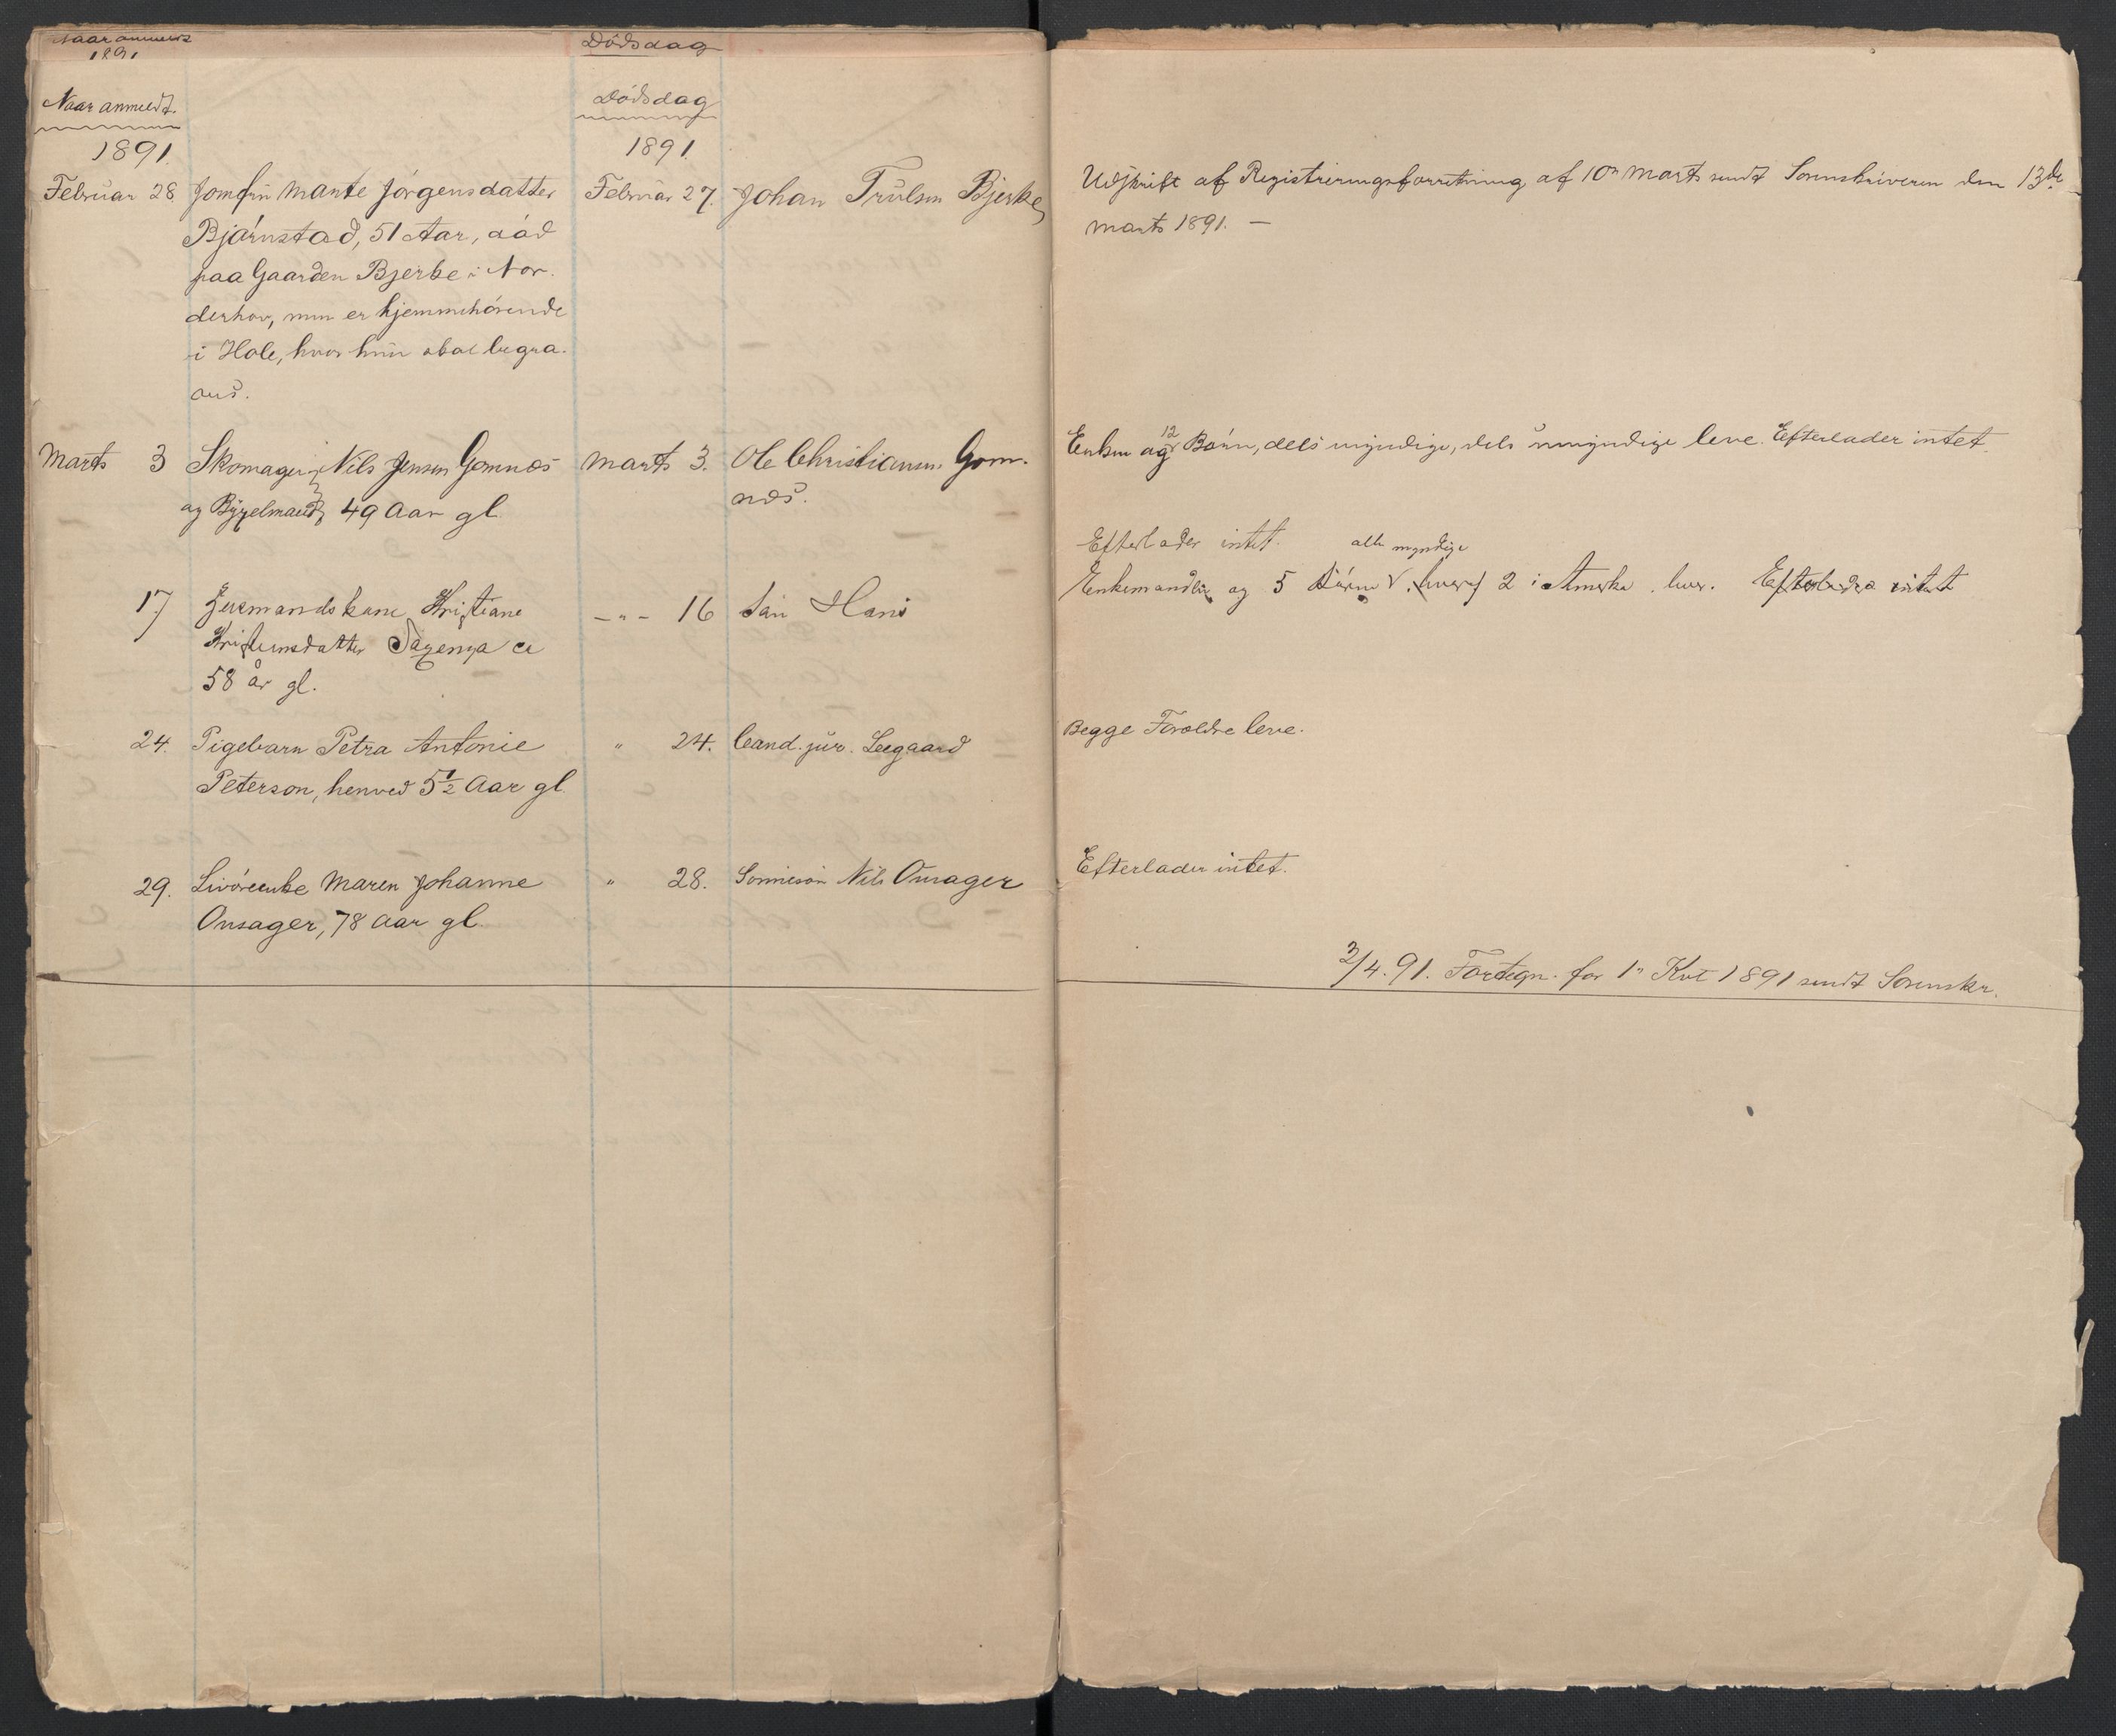 Naar anmeldt
1891
Dødsdag
Naar anmeldt.
1891.
Dødsdag
1891.
Februar 28 Jomfru Marte Jörgensdatter
Bjørnstad, 51 Aar, död
paa Gaarden Bjerke i Nor-
derhov, men er hjemmehörende
i Hole, hvor hun skal begra-
ves.
Februar 27. Johan Trulsen Bjerke
Udskrift af Registreringsforretning af 10n Marts sendt Sorenskriveren den 13de
Marts 1891. —
Marts 3 Skomager Nils Jensen Gomnæs
og Bygselmand 49 Aar gl.
Marts 3. Ole Christiansen Gom-
næs.
Enken og 12 Börn, dels myndige, dels umyndige leve. Efterlader intet.
Efterlader intet. alle myndige
17 Husmandskone Kristiane
Kristensdatter ca
58 år gl.
— " — 16 Sön Hans
Enkemanden og 5 Börn hvoraf 2 i Amerka lever. Efterlader intet
24. Pigebarn Petra Antonie
Peterson, henved 5½ Aar gl.
" 24. Cand. jur. Leegaard
Begge Forældre leve.
29. Livöreenke Maren Johanne
Onsager, 78 Aar gl.
" 28. Sönnesön Nils Onsager
Efterlader intet.
2/4. 91. Fortegn. for 1" Kvt 1891 sendt Sorenskr.